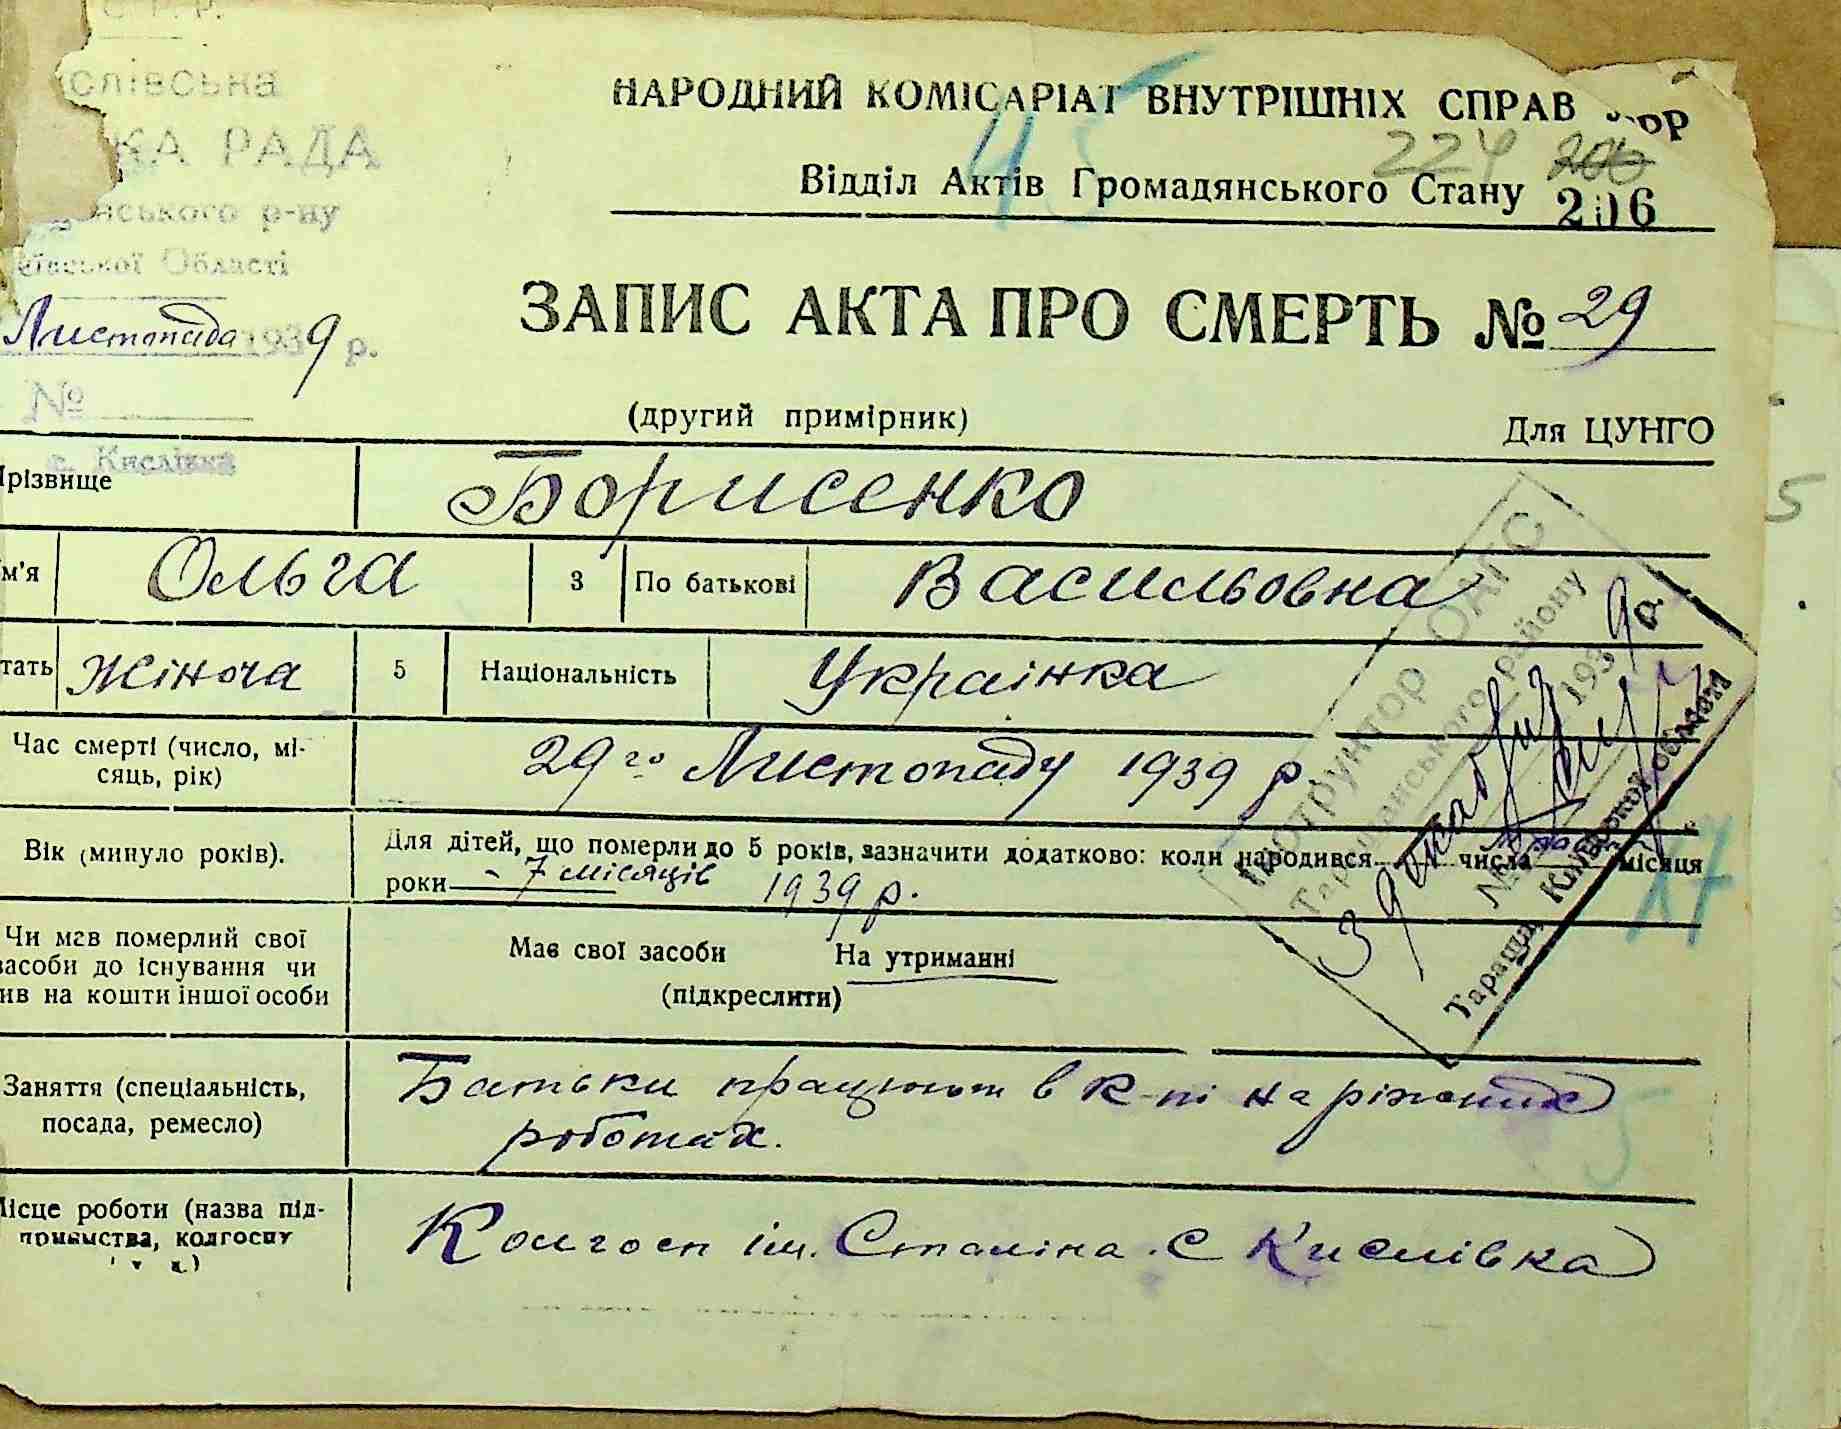 С. Р. Р.
слівська
КА РАДА
нського р-ну
ївської Області
Листопада 1939 р.
№
с. Кислівка
НАРОДНИЙ КОМІСАРІАТ ВНУТРІШНІХ СПРАВ
45
224 206
Відділ Актів Громадянського Стану 206
ЗАПИС АКТА ПРО СМЕРТЬ № 29
(другий примірник)
Для ЦУНГО
різвище Борисенко
5
м'я Ольга 3 По батькові Васильовна
тать Жіноча 5 Національність Украінка
Час смерті (число, мі-
сяць, рік)
29го Листопаду 1939 р.
Вік (минуло років).
Для дітей, що померли до 5 років, зазначити додатково: коли народився числа місяця
роки - 7 місяців 1939 р.
17
Чи мав померлий свої
засоби до існування чи
ив на кошти іншої особи
Має свої засоби На утриманні
(підкреслити)
ОАГС
Таращанського району
193 9 р.
№
Тараща, Київської області
Заняття (спеціальність,
посада, ремесло)
Батьки працюют в к-пі на ріжних
роботах.
5
ісце роботи (назва під-
приємства, колгоспу
Колгосп ім. Сталіна с Кислівка